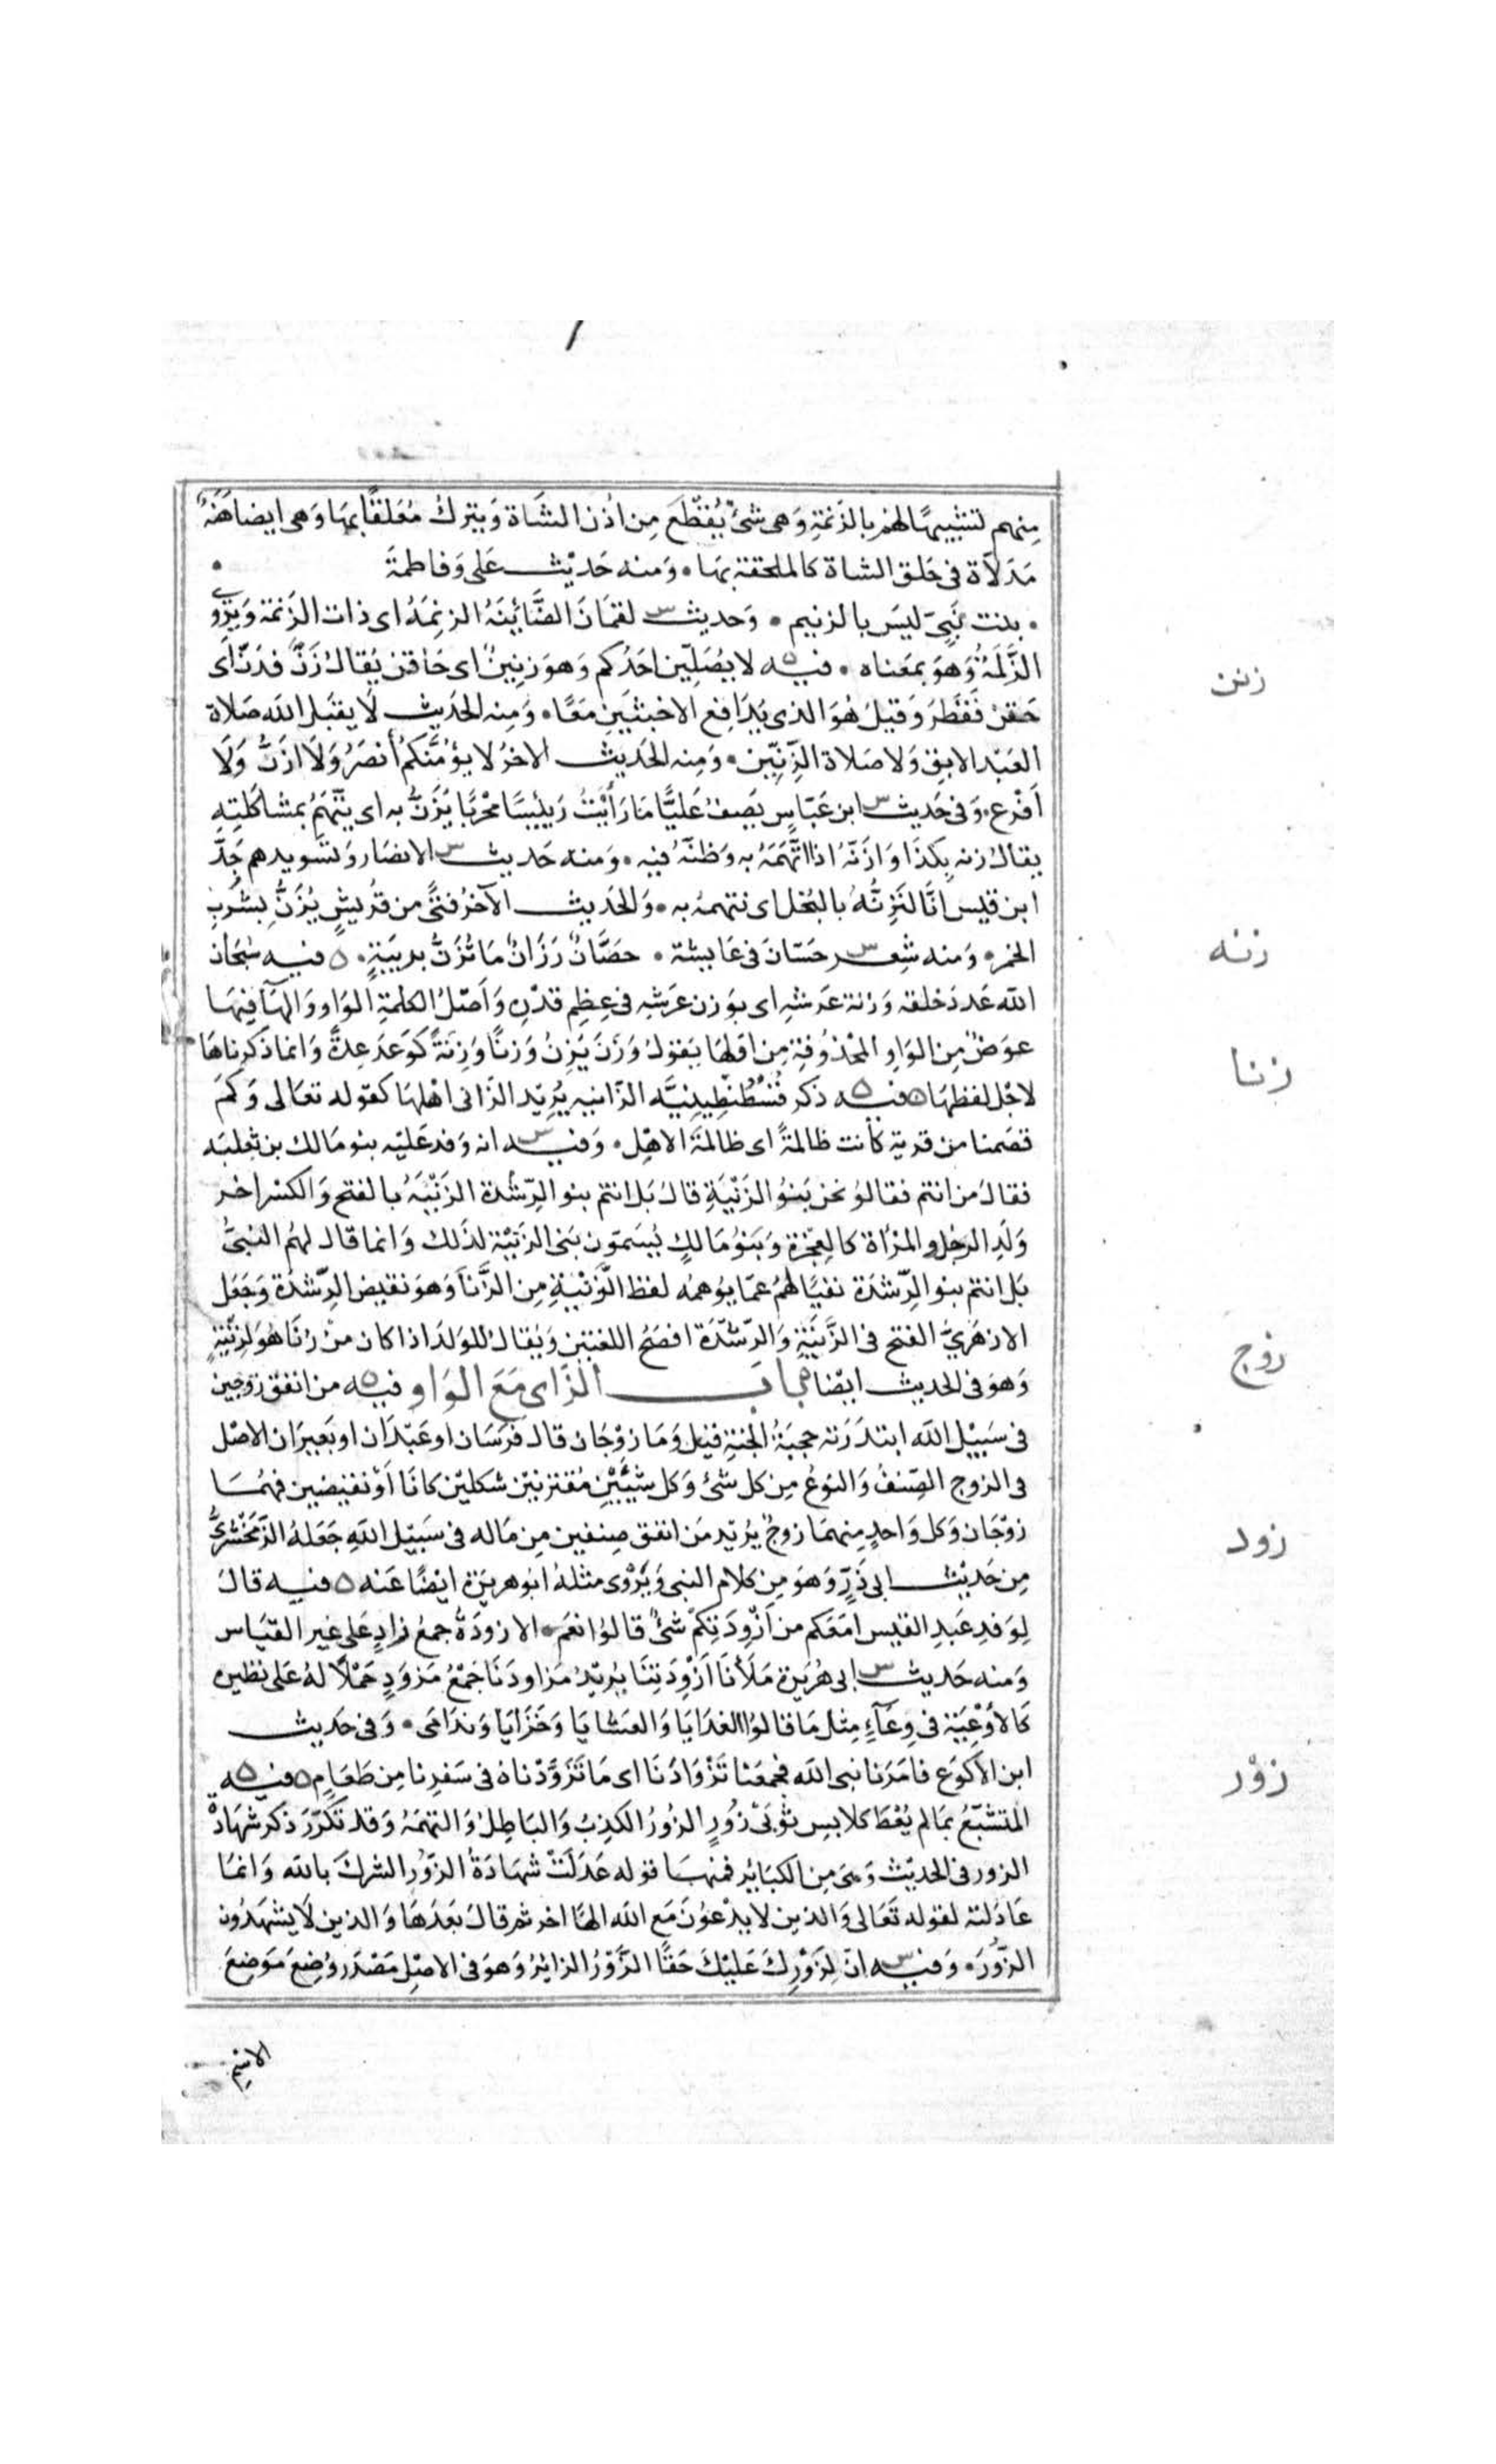 منهم تشبيهًا لهم بالزنمةِ وَهى شئٌ يُقطَعَ مِن اُذن الشَاة وَيترك مُعَلقًا بهَا وَهى ايضا هَنَةٌ
مَدَلاَة فى حَلق الشاة كالملحقة بهَا ٠ وَمنه حَديْث عَلى وَفاطمَةَ
٠ بنت نَبِىّ ليسَ بالزنيم ٠ وَحديث لقمَانَ الضَّائِنَةُ الزنِمَةُ اى ذات الزَنمَة وَيروى
زنن
الزَّلَمَةُ وَهوَ بمعَناه ٠ فيه لا يصَلِّين احَدُكم وَهوَ زنِينٌ اى حَاقن يُقالُ زَنَّ فذنَّ اَى
حَقنَ فَقَطَرَ وَقيلَ هُوَ الذى يُدَافِع الاخبثَينِ مَعًا ٠ وَمِنه الحَديث لَا يقبَل الله صَلاة
العَبْد الابِق وَلا صَلاة الزِّنِّين ٠ وَمِنه الحَديث الاخرُ لا يؤمَّنَّكم اَنصَرُ وَلَا ازَنُّ وَلَا
اَفْرَع ٠ وَفى حَديث ابن عَبّاسٍ يَصِفُ عَليًّا مَا رَأَيْتُ رَئِيسًا مِحْرَبًا يُزَنُّ به اى يتّهَمُ بمشاكلتِهِ
يقالُ زنه بِكَذَا وَازنّهُ اذا اتَّهَمَهُ به وَظنّهُ فيه ٠ وَمنه حَديث الانصَار وَتسَويدهم جَدَّ
ابن قيس انَّا لنَزنُّهُ بالبُخل اى نتهمهُ به ٠ وَالحَديث الآخرُ فتًى من قرَيشٍ يُزَنُّ بِشُربِ
زنه
الخمر ٠ وَمنه شِعر حَسّانَ فى عَايشَة ٠ حصَانٌ رَزَانٌ مَا تُزَنُّ بريبَةٍ ٠ ه فيه سُبحَان
الله عَددَ خلقه وَزنة عَرشِهِ اى بوَزن عَرشِهِ فى عِظِم قدْرِه وَاَصْلُ الكلمَةِ الوَاو وَالهَآ فيهَا
عوَضٌ مِن الوَاوِ المحْذوُفَةِ مِن اوّلهَا يَقولُ وَزَنَ يَزِنُ وَزنًا وَزِنَةً كَوَعَدَ عِدَةً وَانما ذكرناهَا
زنا
لاجْل لفظهَا ه فيه ذكر قُسْطُنْطِينيَّة الزّانيهِ يُرِيْد الزَانى اهْلهَا كقوله تعَالى وَكمَ
قصَمنا من قرية كانت ظالمةً اى ظالمةَ الاهْلِ ٠ وَفيه انه وَفد عَليْه بنو مَالك بن ثعلبَه
فقالَ من انتم فقالوُ نحن بَنوُ الزَنْيَةِ قالَ بَل انتم بنو الرِّشدة الزَنْيَةُ بالفتح وَالكسْر اخر
وَلَدِ الرجُل وَالمرْأة كالعِجْزة وَبنَوُ مَالكٍ يُسَمّون بَنى الزنيَة لذَلك وَانما قال لهمُ النبىُّ
بَل انتم بنو الرِّشدَة نفيًا لهُم عَمّا يوُهمُه لفظ الزَنْيَةِ مِن الزِّنَا وَهوَ نقيض الرِّشدة وَجَعَل
زوج
الازهَرىُّ الفتح فى الزَّنيَةِ وَالرّشْدَة افصَحُ اللغتين وَيُقال للوَلدَ اذا كان مِنْ زنًا هُوَ لزنْيَةٍ
وَهوَ فى الحديث ايضًا ه باب الزَّاى مَعَ الوَاو فيه من انفق زَوجين
فى سَبيْل الله ابتدَرَته حجبَةُ الجنةِ قيل وَمَا زوْجَان قال فرَسَان او عَبْدَان او بَعيرَان الاصْل
فى الزوج الصِّنفُ وَالنوعُ مِن كل شئ وَكل شيْئَيْنِ مُقترنيْن شكليْن كانَا اَوْ نقيضين فهُمَا
زود
زوْجَان وَكل وَاحدٍ منهمَا زوجٌ يُريْد مَن انفق صِنفين مِن مَاله فى سَبيْل اللهِ جَعَلهُ الزَّمَخْشرىُّ
مِن حَديْث ابى ذَرٍّ وَهوَ مِن كلام النبى وَيُرْوى مثلهُ ابو هريرَة ايضًا عَنه ه فيه قال
لِوَفدِ عَبدِ القيس امَعَكم من اَزْوِدَتِكمْ شئٌ قالوُا نعَم ٠ الازودَةُ جمعُ زادٍ عَلى غيرِ القيَاس
وَمنه حَديث ابى هُرَيرَة مَلَأْنَا اَزْوِدَتِنَا يُريْدُ مَزاودَنَا جَمْعُ مَزوَدٍ حَمْلًا لهُ عَلى نظيره
كَالاَوْعِيَة فى وِعَآءٍ مِثل مَا قالوُا الغدَايَا وَالعَشايَا وَخَزَايَا وَندَامَى ٠ وَفى حَديث
زَوْر
ابن الاكوَع فامَرَنا نبى الله فجمعَنا تَزْوَادَنَا اى مَا تَزَوَّدْناهُ فى سَفرِنا مِن طَعَامٍ ه فيه
المتشبّعُ بمَا لم يُعْطَ كلابس ثوْبَىْ زُورٍ الزورُ الكذِبُ وَالبَاطِلُ وَالتهمَةُ وَقد تكَرّرَ ذكر شهَادة
الزور فى الحديْث وَهىَ مِن الكبَائِر فمنهَا قوله عَدَلَتْ شهَادَةُ الزّوُرِ الشركَ بالله وَانمَا
عَادَلته لقوله تَعَالى وَالذين لا يدْعوُنَ مَع الله الهًا اخر ثم قال بَعدَهَا وَالذين لَا يشهَدُون
الزُّورَ ٠ وَفيه انّ لِزَوْرِكَ عَليْكَ حَقًّا الزَّوْرُ الزائِرُ وَهوَ فى الاصْلِ مَصْدَر وُضِعَ مَوَضِعَ
الاسْمِ